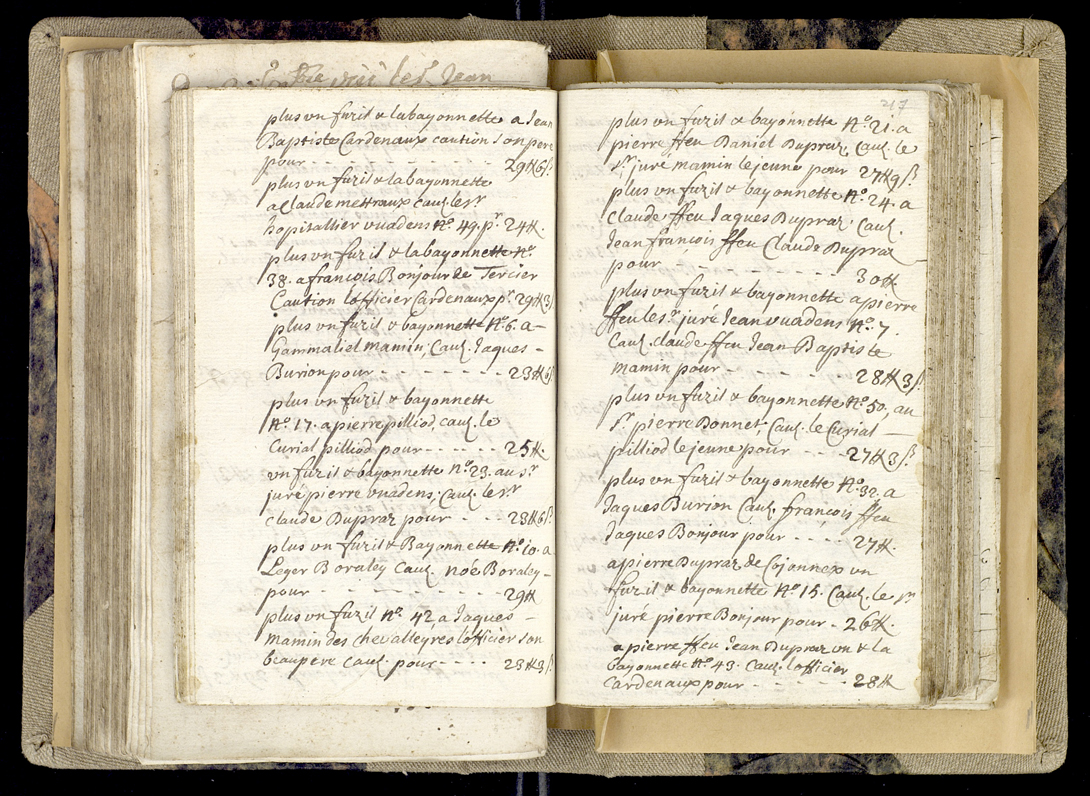 plus vn fuzil & la bayonnette a Jean
Baptiste Cardenaux caution son pere
pour - - - - - - - 29 ff 6 ß.
plus vn fuzil & la bayonnette
a Claude mettraux caux. le sr
hopitallier vuadens no. 49. pr. 24 ff.
plus vn fuzil & la bayonnette no.
38. a francois Bonjour de Tercier
Caution lofficier Cardenaux pr. 29 ff 3
plus vn fuzil & bayonnette No. 6. a -
Gammaliel mamin, Caux. Jaques -
Burion pour - - - - - - - 23 ff 6
plus vn fuzil & bayonnette
No. 17. a pierre pilliod, caux. le
Curial pilliod pour - - - - - 25 ff
vn fuzil & bayonnette no. 23. au sr.
juré pierre vuadens, Caux. le sr
claude Dupraz pour - - - 28 ff 6 ß
plus vn fuzil & Bayonnette No. 10. a
Leger Boraley Caux. noé Boraley -
pour - - - - - - - 29 ff
plus vn fuzil no. 42 a Jaques -
mamin des chevalleyres lofficier son
beaupere Caux. pour - - - - 23 ff 3 ß
217
plus vn fuzil & bayonnette No. 21. a
pierre ffeu Daniel Dupraz, Caux. le
sr. juré mamin le jeune pour 27 ff 9 ß.
plus vn fuzil & bayonnette no. 24. a
Claude ffeu Jaques Dupraz, Caux.
Jean francois ffeu Claude Dupraz
pour - - - - - - - 30 ff
plus vn fuzil & bayonnette a pierre
ffeu le sr. juré Jean vuadens No. 7.
Caux. claude ffeu Jean Baptiste
mamin pour - - - - - - 28 ff 3 ß.
plus vn fuzil & bayonnette No. 50. au
sr. pierre Bonnet Caux. le Curial -
pilliod le jeune pour - - - 27 ff 3 ß.
plus vn fuzil & bayonnette No. 32. a
Jaques Burion Caux. françois ffeu
Jaques Bonjour pour - - - - 27 ff.
a pierre Dupraz de Cojonnex vn
fuzil & bayonnette No. 15. Caux. le sr
juré pierre Bonjour pour - 26 ff.
a pierre ffeu Jean Dupraz vn & la
bayonnette No. 43. Caux. lofficier
Cardenaux pour - - - - - - 28 ff